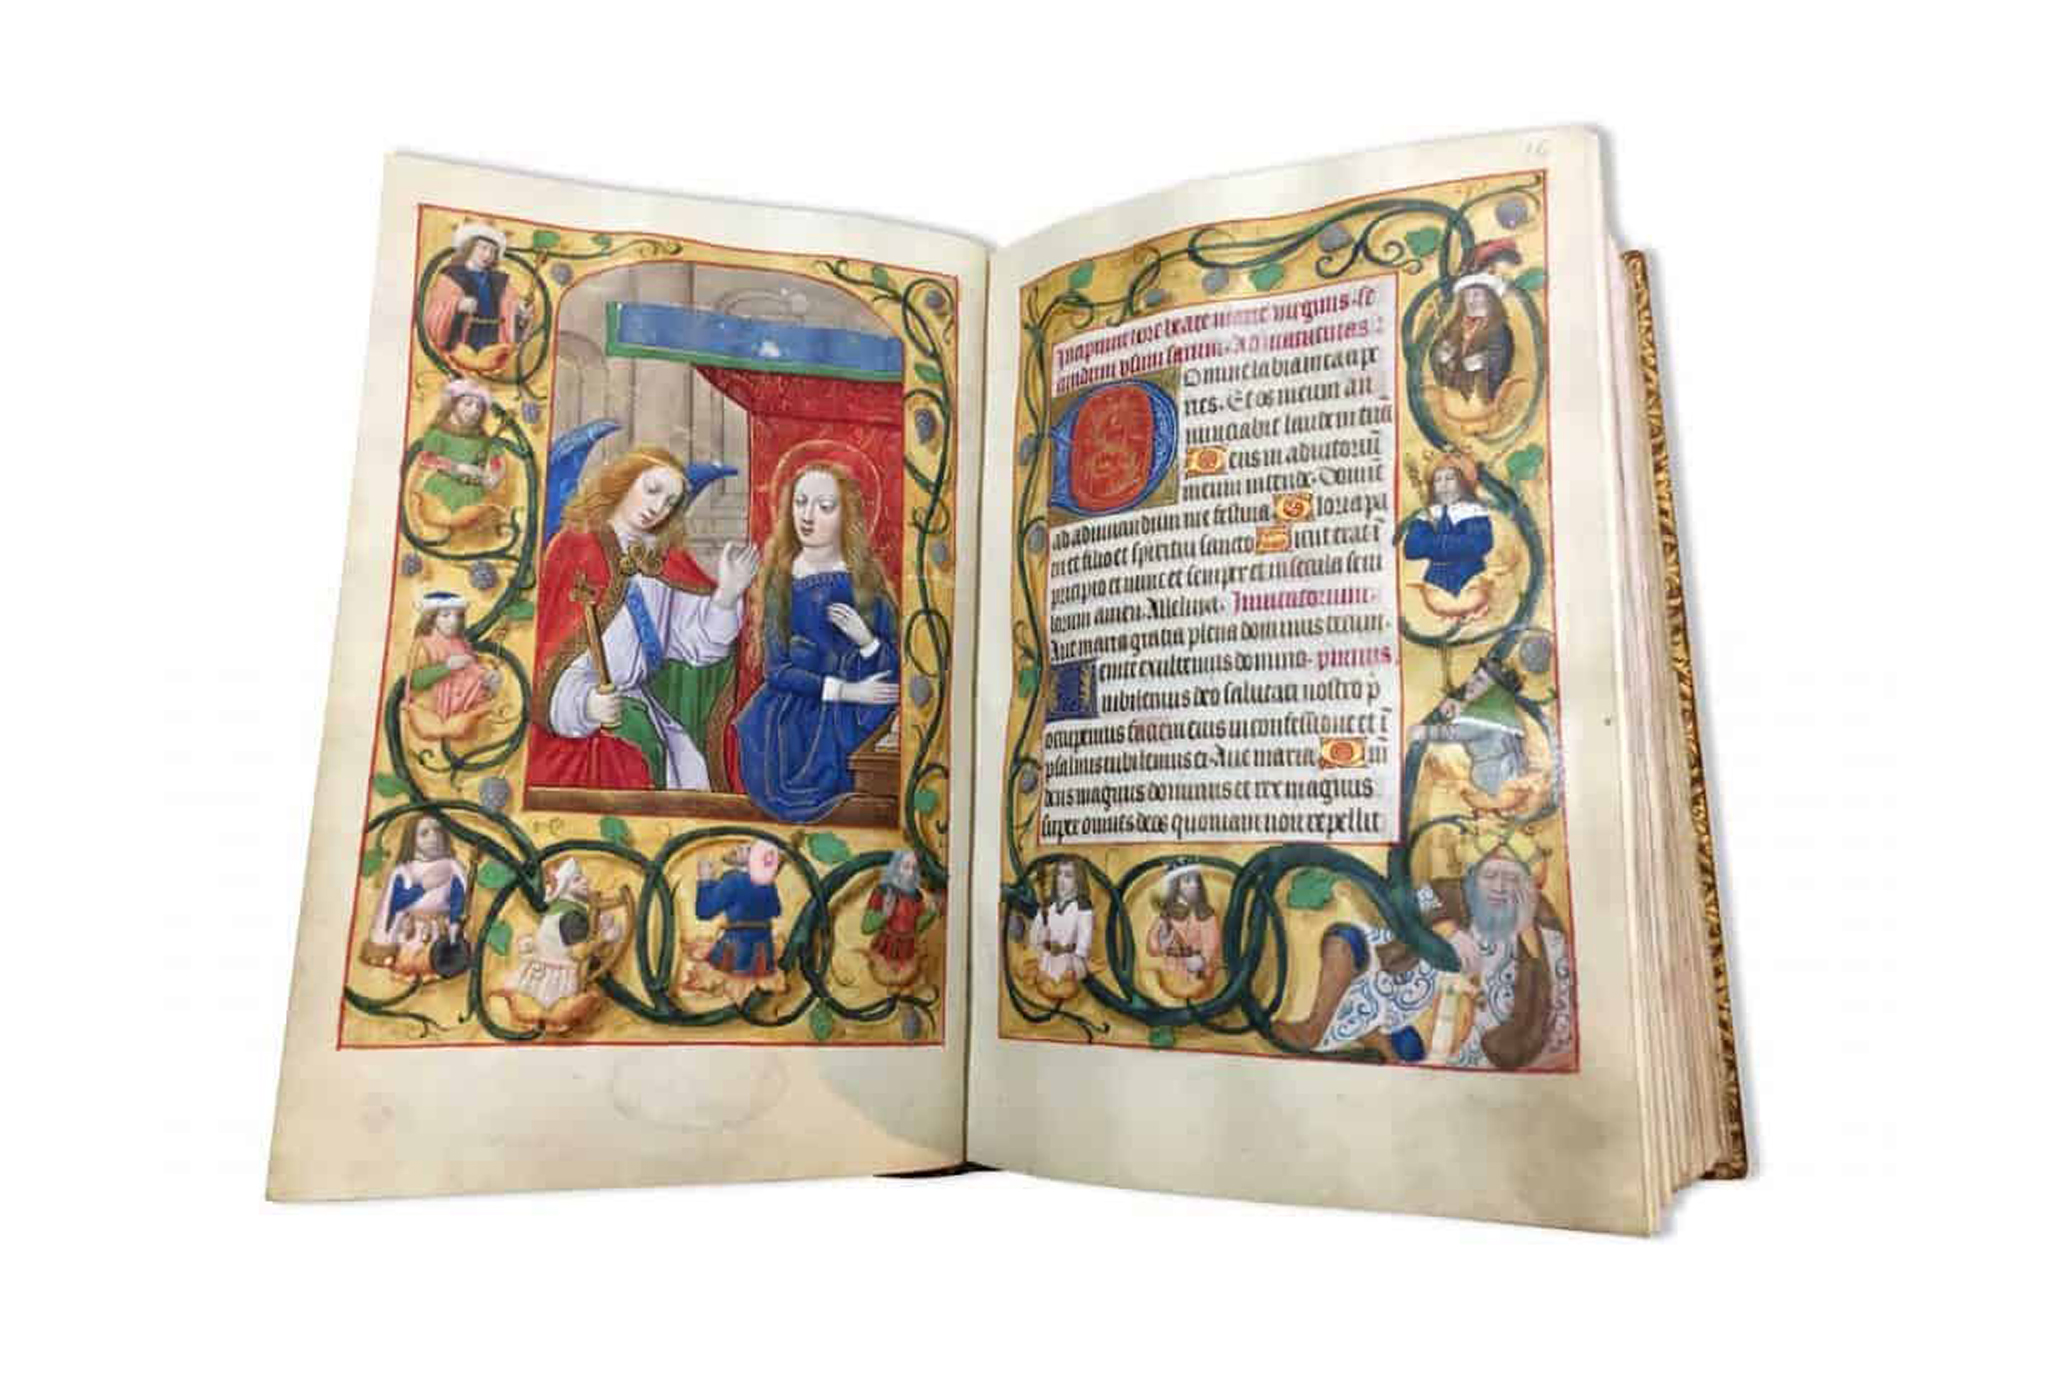 16
Incipiunt hore beate marie virginis se
cundum usum sarum. Ad matutinas.
Domine labia mea ape
ries. Et os meum an
nunciabit laudem tuā
Deus in adiutoriū
meum intende. Domine
ad adiuuandum me festina Gloria pa
tri et filio et spiritui sancto Sicut erat ī
principio et nunc et semper et in secula secu
lorum amen. Alleluya. Inuitatorium.
Aue maria gratia plena dominus tecum.
Uenite exultemus domino. psalmus
iubilemus deo salutari nostro p
occupemus faciem eius in confessione et ī
psalmis iubilemus ei. Aue maria Qm̄
deus magnus dominus et rex magnus
super omnes deos quoniam non repellit